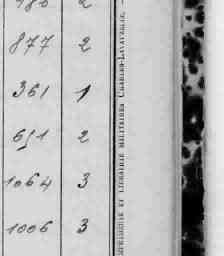 877 2
361 1
691 2
1064 3
1006 3
IMPRIMERIE ET LIBRAIRIE MILITAIRES CHARLES-LAVAUZELLE